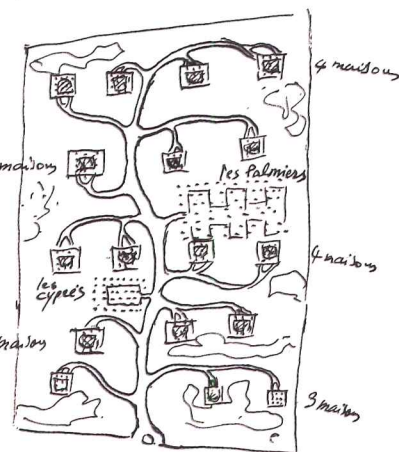 4 maisons
maisons
les Palmiers
4 maisons
les
cyprés
maison
3 maison